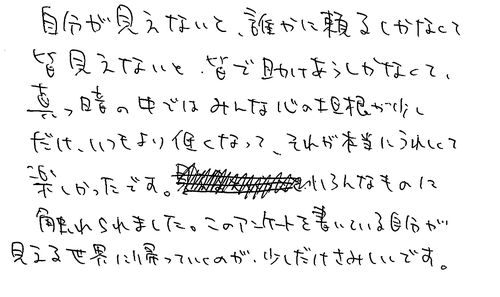 自分が見えないと、誰かに頼るしかなくて
皆見えないと、皆で助けあうしかなくて、
真っ暗の中ではみんな心の垣根が少し
だけ、いつもより低くなって、それが本当にうれしくて
楽しかったです。いろんなものに
触れられました。このアンケートを書いている自分が
見える世界に帰っていくのが、少しだけさみしいです。